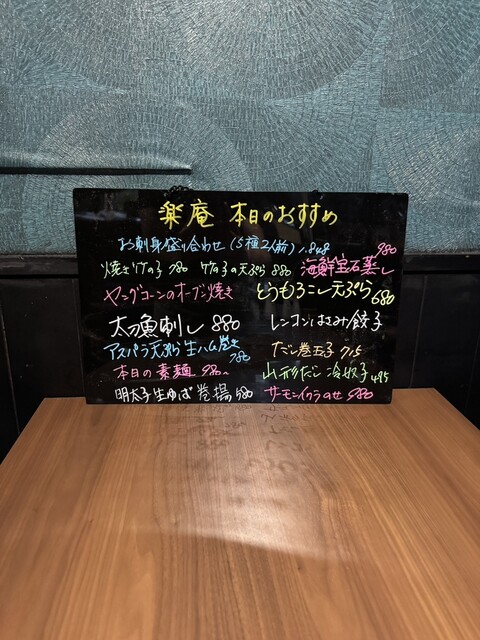 楽庵 本日のおすすめ
お刺身盛り合わせ (5種2人前) 1.848
焼きたけの子 780 竹の子の天ぷら 880 海鮮宝石蒸し 980
ヤングコーンのオーブン焼き とうもろこし天ぷら 680
太刀魚刺し 880 レンコンはさみ餃子
アスパラ天ぷら生ハム巻き 780 だし巻玉子 715
本日の素麺 980〜 山形だし冷奴 495
明太子生ゆば巻揚 580 サーモンイクラのせ 980